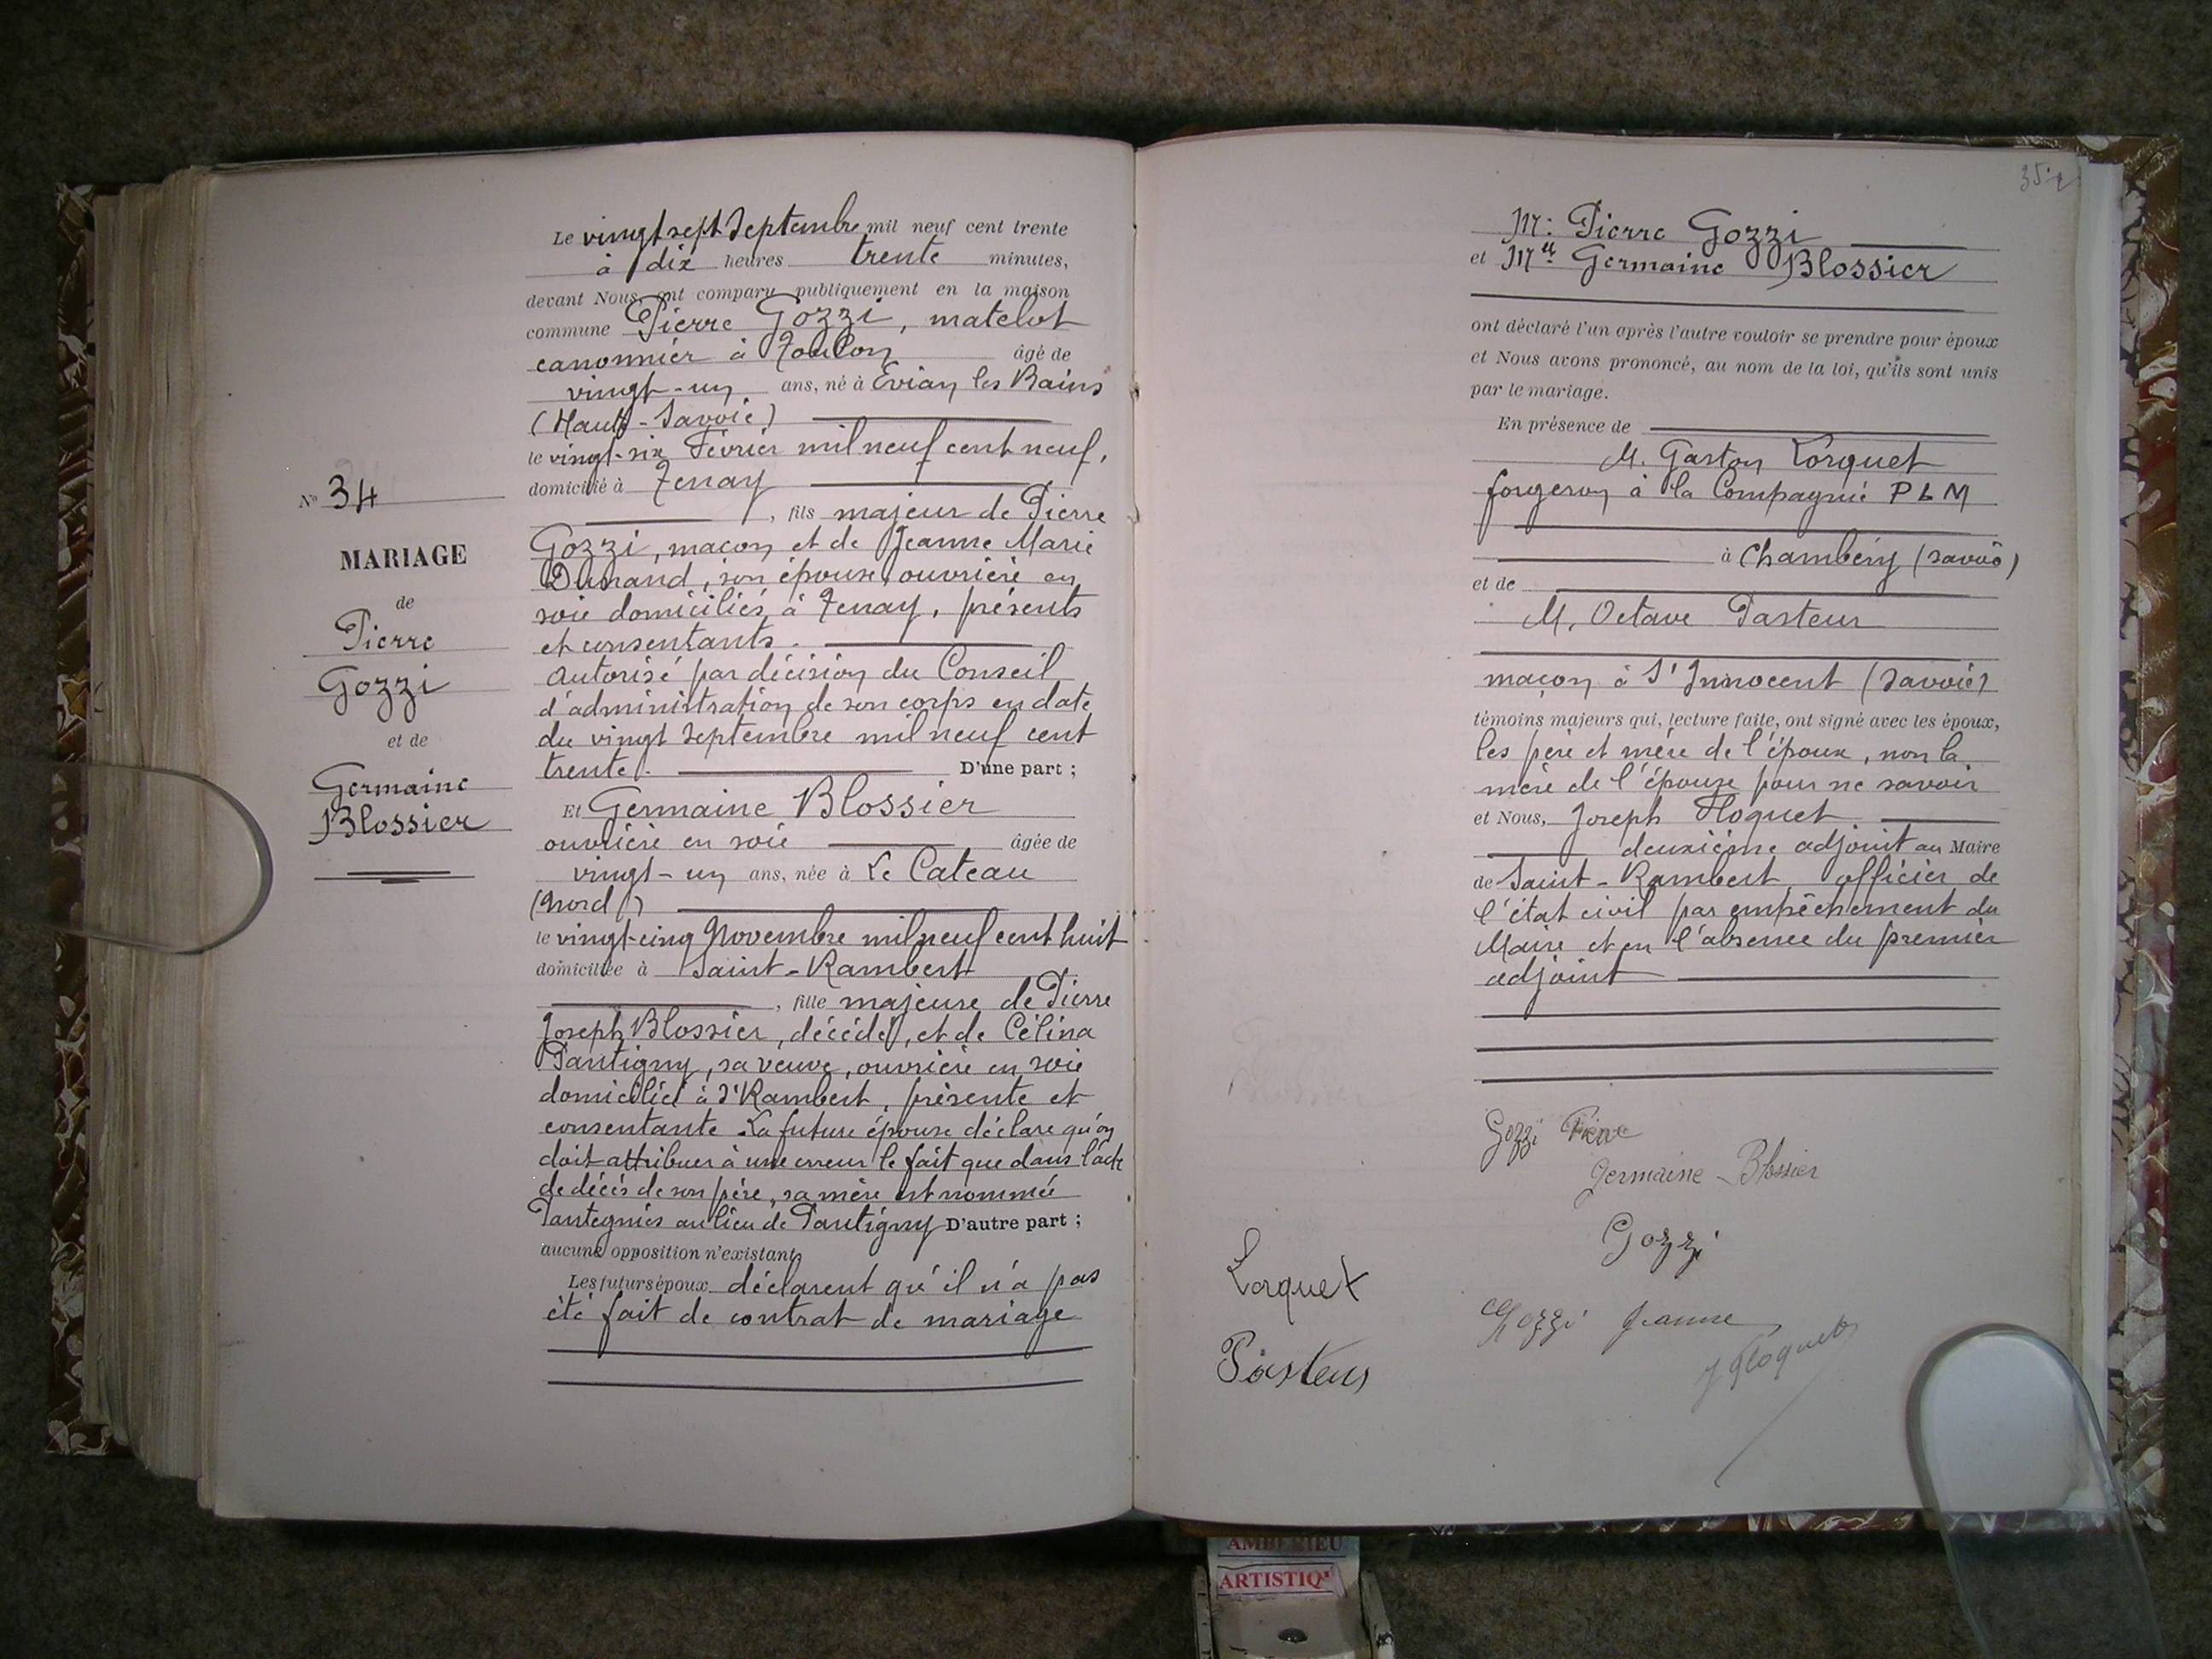 Le vingt sept Septembre mil neuf cent trente
à dix heures trente minutes,
devant Nous, ont comparu publiquement en la maison
commune Pierre Gozzi, matelot
canonnier à Toulon âgé de
vingt-un ans, né à Evian les Bains
(Haute-Savoie)
le vingt-six Février mil neuf cent neuf,
domicilié à Tenay
, fils majeur de Pierre
Gozzi, maçon et de Jeanne Marie
Dunand, son épouse, ouvrière en
soie domiciliés à Tenay, présents
et consentants.
Autorisé par décision du Conseil
d'administration de son corps en date
du vingt Septembre mil neuf cent
trente. D'une part ;
Et Germaine Blossier
ouvrière en soie âgée de
vingt-un ans, née à Le Cateau
(Nord)
le vingt-cinq Novembre mil neuf cent huit
domiciliée à Saint-Rambert
, fille majeure de Pierre
Joseph Blossier, décédé, et de Célina
Pantigny, sa veuve, ouvrière en soie
domiciliée à St Rambert, présente et
consentante. La future épouse déclare qu'on
doit attribuer à une erreur le fait que dans l'acte
de décès de son père, sa mère est nommée
Pantegnies au lieu de Pantigny D'autre part ;
aucune opposition n'existant
Les futurs époux déclarent qu'il n'a pas
été fait de contrat de mariage
No 34
MARIAGE
de
Pierre
Gozzi
et de
Germaine
Blossier
M. Pierre Gozzi
et Mlle Germaine Blossier
ont déclaré l'un après l'autre vouloir se prendre pour époux
et Nous avons prononcé, au nom de la loi, qu'ils sont unis
par le mariage.
En présence de
M. Gaston Lorquet
forgeron à la Compagnie P L M
à Chambéry (Savoie)
et de
M. Octave Pasteur
maçon à St Innocent (Savoie)
témoins majeurs qui, lecture faite, ont signé avec les époux,
les père et mère de l'époux, non la
mère de l'épouse pour ne savoir
et Nous, Joseph Floquet
deuxième adjoint au Maire
de Saint-Rambert, officier de
l'état civil par empêchement du
Maire et en l'absence du premier
adjoint
Gozzi Pierre
Germaine Blossier
Gozzi
Lorquet
Gozzi Jeanne
Pasteur
J Floquet
AMBERIEU
ARTISTIQ